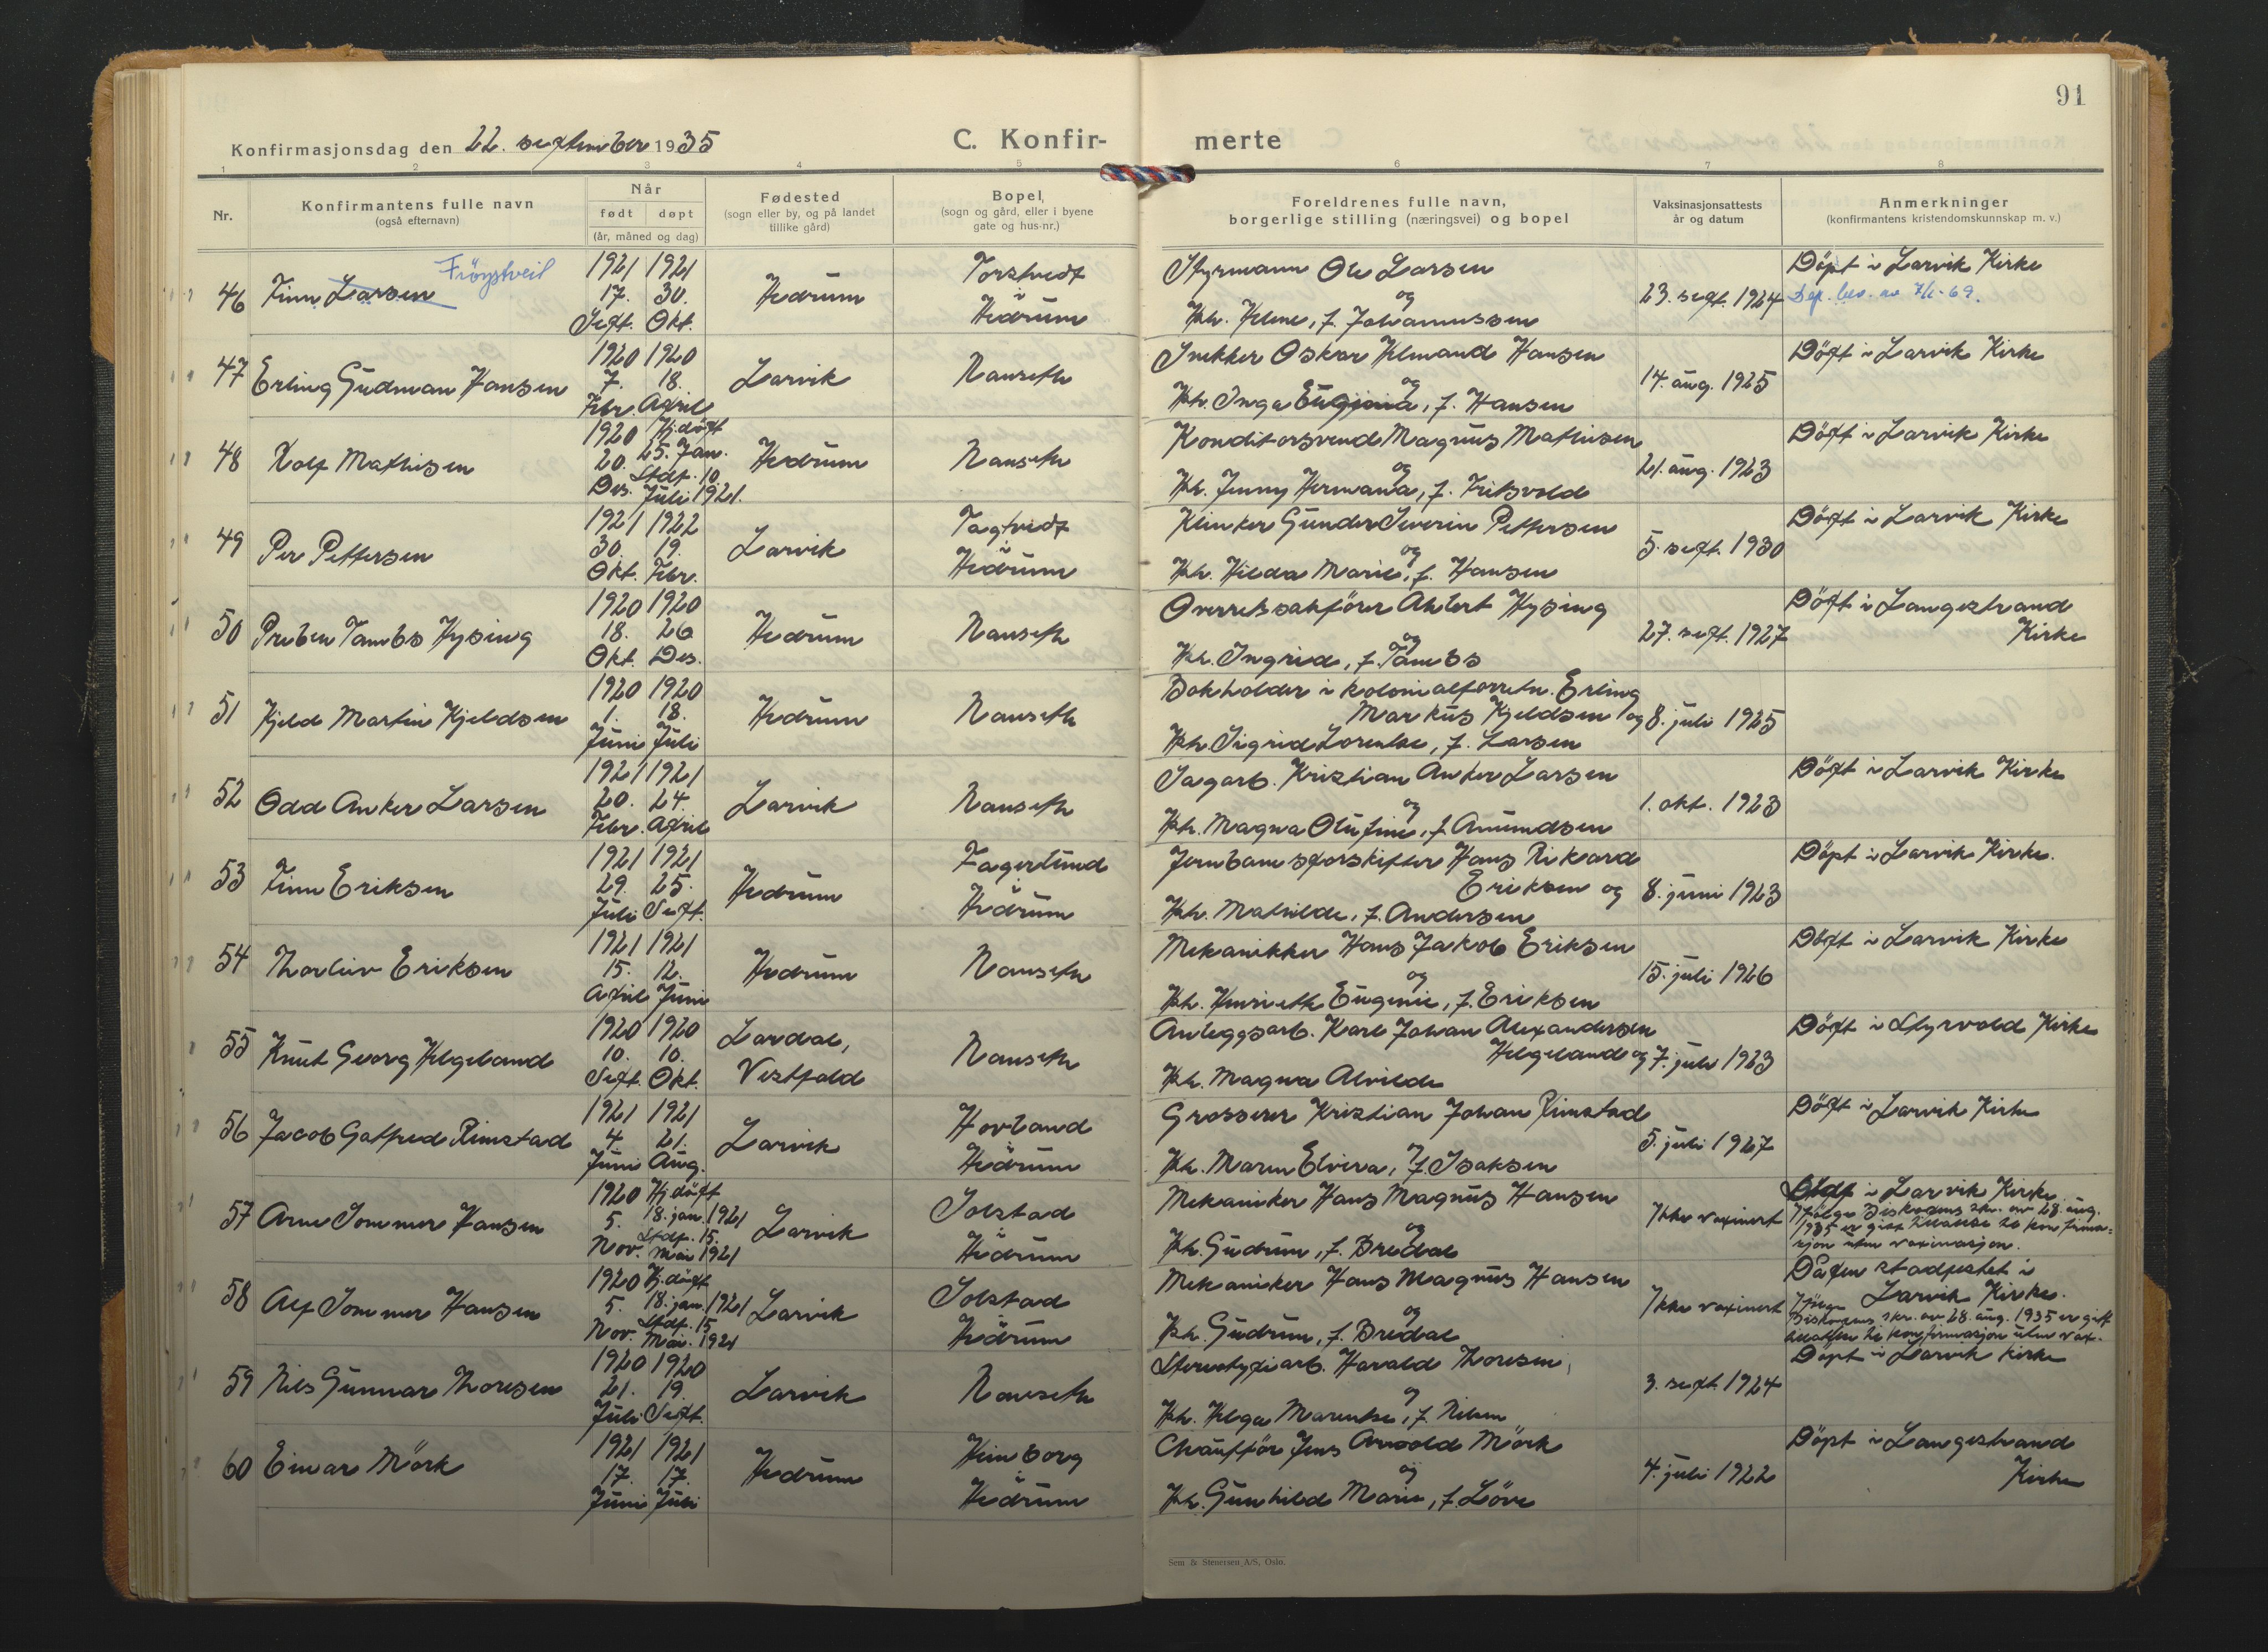 91
Konfirmasjonsdag den 22. september 1935
C. Konfir-
merte
1 2 3 4 5 6 7 8
Nr.
Konfirmantens fulle navn
(også efternavn)
Når
født døpt
(år, måned og dag)
Fødested
(sogn eller by, og på landet
tillike gård)
Bopel,
(sogn og gård, eller i byene
gate og hus-nr.)
Foreldrenes fulle navn,
borgerlige stilling (næringsvei) og bopel
Vaksinasjonsattests
år og datum
Anmerkninger
(konfirmantens kristendomskunnskap m. v.)
46 Finn Larsen Fröystveil
1921 1921
17. 30.
Sept. Okt.
Hedrum
Torstvedt
i
Hedrum
Styrmann Ole Larsen
og
H. Helene, f. Johannessen
23. sept. 1924
Döpt i Larvik Kirke
Dep. bev. av 7/2-69.
47 Erling Gudman Hansen
1920 1920
7. 18.
Febr. April
Larvik
Nanseth
Snekker Oskar Helmand Hansen
og
H. Inga Eugenia, f. Hansen
14. aug. 1925
Döpt i Larvik Kirke
48 Rolf Mathisen
1920 Hj.döpt
20. 25. Jan.
Des. Stdf. 10.
Juli 1921.
Hedrum
Nanseth
Konditorsvend Magnus Mathisen
og
H. Jenny Hermana, f. Fritsvold
21. aug. 1923
Döpt i Larvik Kirke
49 Per Pettersen
1921 1922
30. 19.
Okt. Febr.
Larvik
Tagtvedt
i
Hedrum
Klinker Gunder Severin Pettersen
og
H. Hilda Marie, f. Hansen
5. sept. 1930
Döpt i Larvik Kirke
50 Preben Tambs Hysing
1920 1920
18. 26
Okt. Des.
Hedrum
Nanseth
Overretssakförer Ahlert Hysing
og
H. Ingrid, f. Tambs
27. sept. 1927
Döpt i Langestrand
Kirke
51 Kjeld Martin Kjeldsen
1920 1920
1. 18.
Juni Juli
Hedrum
Nanseth
Bokholder i kolonialforretn. Erling
Markus Kjeldsen og
H. Sigrid Lorentse, f. Larsen
8. juli 1925
52 Odd Anker Larsen
1921 1921
20. 24.
Febr. April
Larvik
Nanseth
Sagarb. Kristian Anker Larsen
og
H. Magna Olufine, f. Amundsen
1. okt. 1923
Döpt i Larvik Kirke
53 Finn Eriksen
1921 1921
29. 25.
Juli Sept.
Hedrum
Fagerlund
i
Hedrum
Jernbanesporskifter Hans Rikard
Eriksen og
H. Mathilde, f. Andersen
8. juni 1923
Döpt i Larvik Kirke.
54 Thorleiv Eriksen
1921 1921
15. 12.
April Juni
Hedrum
Nanseth
Mekanikker Hans Jakob Eriksen
og
H. Henrieth Eugenie, f. Eriksen
15. juli 1926
Döpt i Larvik Kirke
55 Knut Georg Helgeland
1920 1920
10. 10.
Sept. Okt.
Lardal,
Vestfold
Nanseth
Anleggsarb. Karl Johan Alexandersen
Helgeland og
H. Magna Alvilde
7. juli 1923
Döpt i Styrvold Kirke
56 Jacob Gotfred Rimstad
1921 1921
4 21.
Juni Aug.
Larvik
Hovland
i
Hedrum
Grosserer Kristian Johan Rimstad
og
H. Maren Elvira, f. Isaksen
5. juli 1927
Döpt i Larvik Kirke
57 Arne Sommer Hansen
1920 Hj.döpt
5. 18. jan. 1921
Nov. Stdf. 15.
Mai 1921
Larvik
Solstad
i
Hedrum
Mekaniker Hans Magnus Hansen
og
H. Gudrun, f. Bredal
Ikke vaxinert
Stdf i Larvik Kirke.
Ifölge Biskopens skr. av 28. aug.
1935 er gitt tillatelse til konfirma-
sjon uten vaxinasjon.
58 Alf Sommer Hansen
1920 Hj.döpt
5. 18. jan. 1921
Nov. Stdf. 15
Mai. 1921
Larvik
Solstad
i
Hedrum
Mekaniker Hans Magnus Hansen
og
H. Gudrun, f. Bredal
Ikke vaxinert
Dåpen stadfestet i
Larvik Kirke.
Ifölge
Biskopens skr. av 28. aug. 1935 er gitt
tillatelse til konfirmasjon uten vax.
59 Nils Gunnar Thoresen
1920 1920
21. 19.
Juli Sept.
Larvik
Nanseth
Stereotypiarb. Harald Thoresen
og
H. Helga Marentse, f. Nilsen
3. sept. 1924
Döpt i Larvik kirke
60 Einar Mörk
1921 1921
17. 17.
Juni Juli
Hedrum
Heimborg
i
Hedrum
Chaufför Jens Arnold Mörk
og
H. Gunhild Marie, f. Löve
4. juli 1922
Döpt i Langestrand
Kirke
Sem & Stenersen A/S, Oslo.